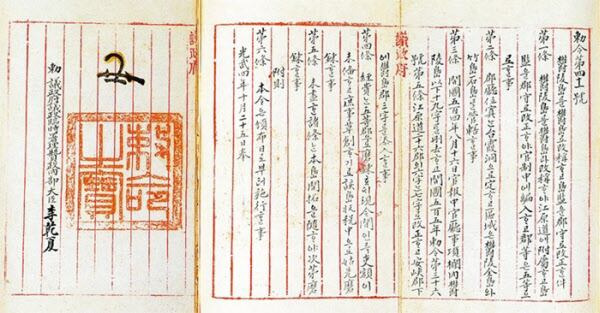 勅令第四十一號
鬱陵島를鬱島로改稱ᄒᆞ고島監을郡守로改正ᄒᆞᆫ件
第一條 鬱陵島를鬱島라改稱ᄒᆞ야江原道에附屬ᄒᆞ고島
監을郡守로改正ᄒᆞ야官制中에編入ᄒᆞ고郡等은五等으
로ᄒᆞᆯ事
第二條 郡廳位置ᄂᆞᆫ台霞洞으로定ᄒᆞ고區域은鬱陵全島와
竹島石島를管轄ᄒᆞᆯ事
第三條 開國五百四年八月十六日官報中官廳事項欄內鬱
陵島以下十九字를刪去ᄒᆞ고開國五百五年勅令第三十六
號第五條江原道二十六郡의六字ᄂᆞᆫ七字로改正ᄒᆞ고安峽郡下
議政府
에鬱島郡三字를添入ᄒᆞᆯ事
第四條 經費ᄂᆞᆫ五等郡으로磨鍊호ᄃᆡ現今間인즉吏額이
未備ᄒᆞ고庶事草創ᄒᆞ기로該島收稅中으로姑先磨
鍊ᄒᆞᆯ事
第五條 未盡ᄒᆞᆫ諸條ᄂᆞᆫ本島開拓을隨ᄒᆞ야次第磨
鍊ᄒᆞᆯ事
附則
第六條 本令은頒布日로부터施行ᄒᆞᆯ事
光武四年十月二十五日奉
勅命之寶
勅 議政府議政臨時署理贊政內部大臣 李乾夏
議政府